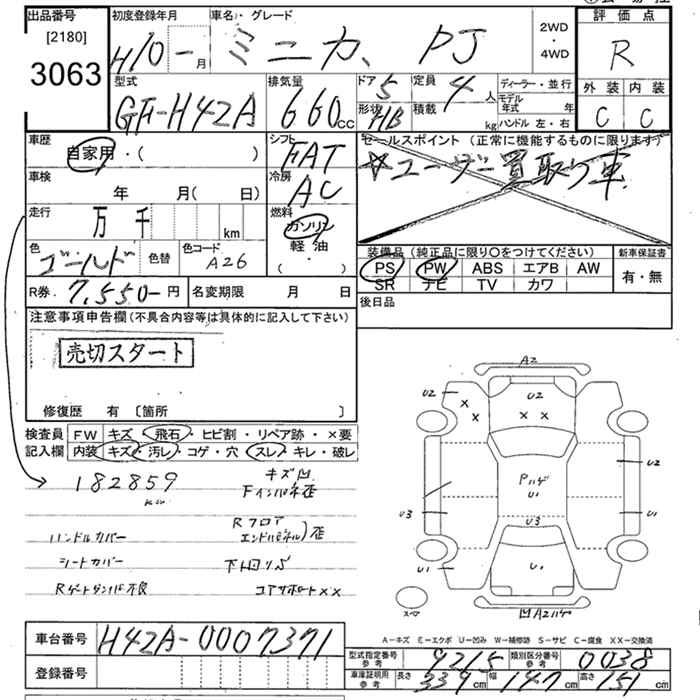 出品番号
[2180]
3063
初度登録年月
H10 - 月
車名・グレード
ミニカ PJ
2WD
・
4WD
評価点
R
外装 内装
C C
型式
GF-H42A
排気量
660cc
ドア 5
形状 HB
定員 4人
積載 kg
ディーラー・並行
モデル年式 年
ハンドル 左・右
車歴
自家用・( )
車検
年 月( 日)
走行
万 千 km
色
ゴールド
色替
色コード
A26
シフト
FAT
冷房
AC
燃料
ガソリン
軽油
( ・ )
セールスポイント (正常に機能するものに限ります)
☆ユーザー買取り車
装備品 (純正品に限り〇をつけてください)
PS PW ABS エアB AW
SR ナビ TV カワ
新車保証書
有・無
後日品
R券. 7.550-円
名変期限 月 日
注意事項申告欄 (不具合内容等は具体的に記入して下さい)
売切スタート
修復歴 有 〔箇所 〕
検査員記入欄
FW キズ・飛石・ヒビ割・リペア跡・×要
内装 キズ・汚レ・コゲ・穴・スレ・キレ・破レ
182859
km
キズ凹
Fインパネ歪
Rフロア
エンドパネル)歪
ハンドルカバー
シートカバー
下回リサビ
Rゲートダンパ不良
コアサポート××
A2
U2
U2
× ×
× ×
U2
Pハゲ
U1
U3
U3
U1
U1
U1
凹A2ハゲ
スペア
A-キズ E-エクボ U-凹み W-補修跡 S-サビ C-腐食 XX-交換済
車台番号
H42A-0007371
登録番号
型式指定番号
参考
9215
類別区分番号
参考
0038
車庫証明用
参考
長さ 339cm 幅 147cm 高さ 151cm